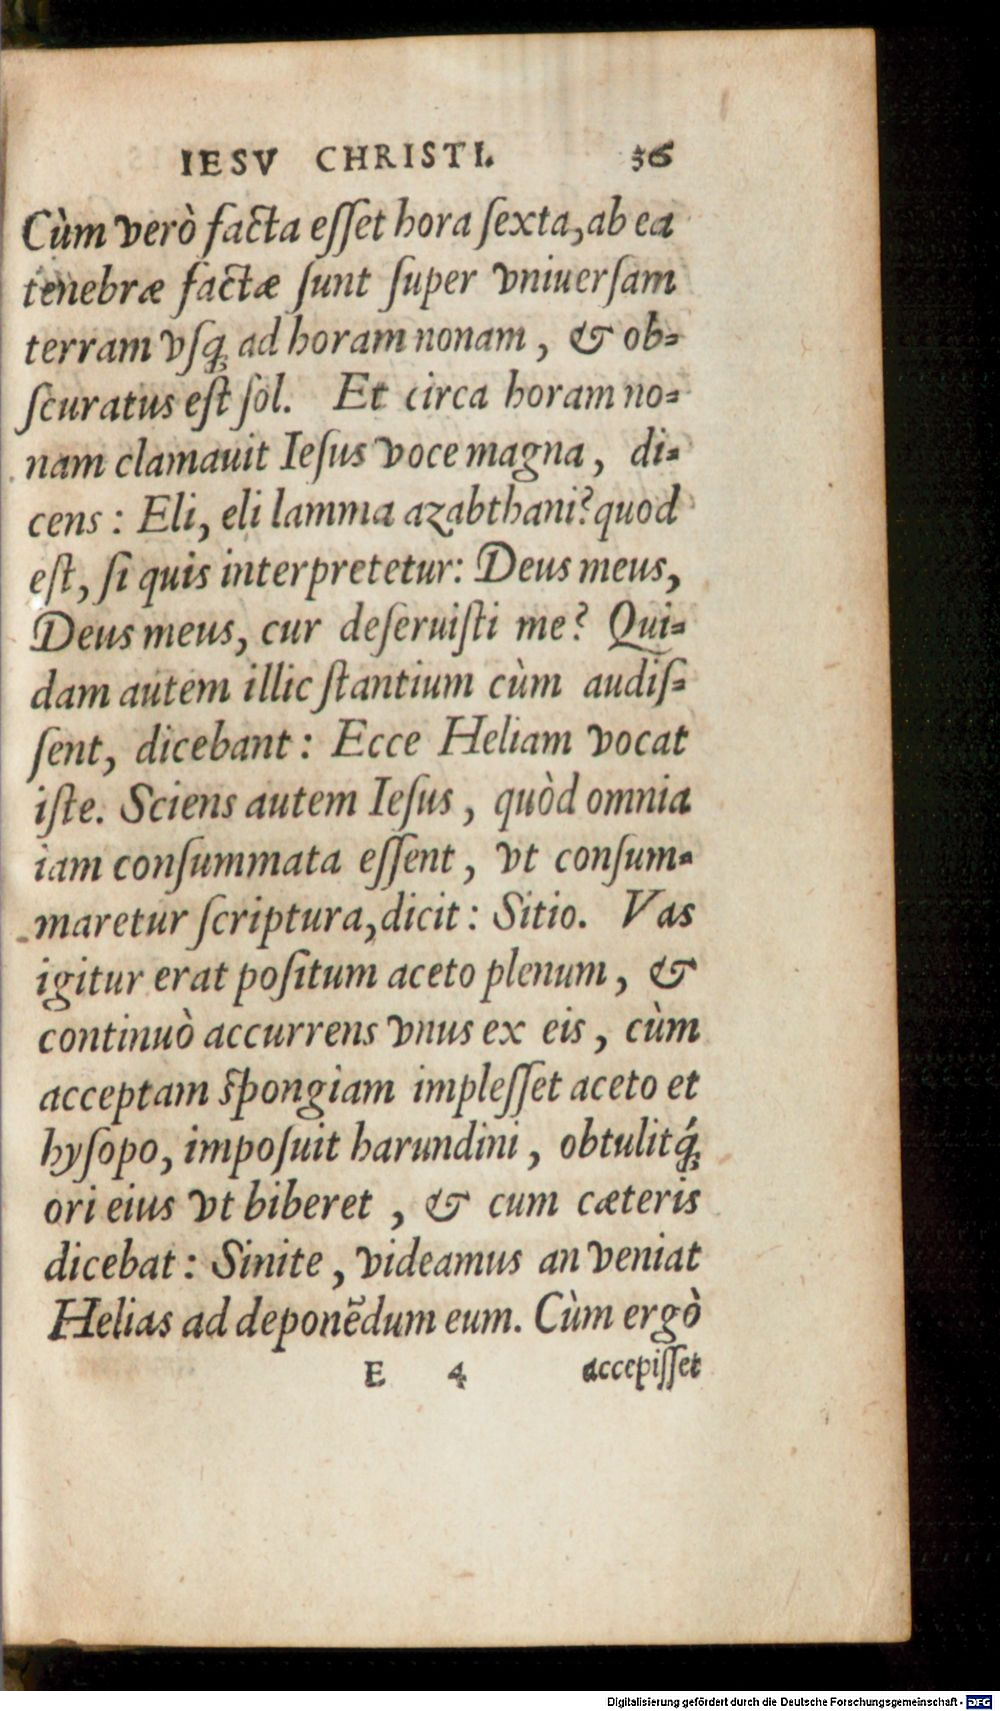 IESV CHRISTI. 36
Cùm verò facta eſſet hora ſexta, ab ea
tenebræ factæ ſunt ſuper vniuerſam
terram vſq; ad horam nonam, & ob-
ſcuratus eſt ſol. Et circa horam no-
nam clamauit Ieſus voce magna, di-
cens: Eli, eli lamma azabthani? quod
eſt, ſi quis interpretetur: Deus meus,
Deus meus, cur deſeruiſti me? Qui-
dam autem illic ſtantium cùm audiſ-
ſent, dicebant: Ecce Heliam vocat
iſte. Sciens autem Ieſus, quòd omnia
iam conſummata eſſent, vt conſum-
maretur ſcriptura, dicit: Sitio. Vas
igitur erat poſitum aceto plenum, &
continuò accurrens vnus ex eis, cùm
acceptam ſpongiam impleſſet aceto et
hyſopo, impoſuit harundini, obtulitq́;
ori eius vt biberet, & cum cæteris
dicebat: Sinite, videamus an veniat
Helias ad deponẽdum eum. Cùm ergò
E 4 accepiſſet
Digitalisierung gefördert durch die Deutsche Forschungsgemeinschaft - DFG